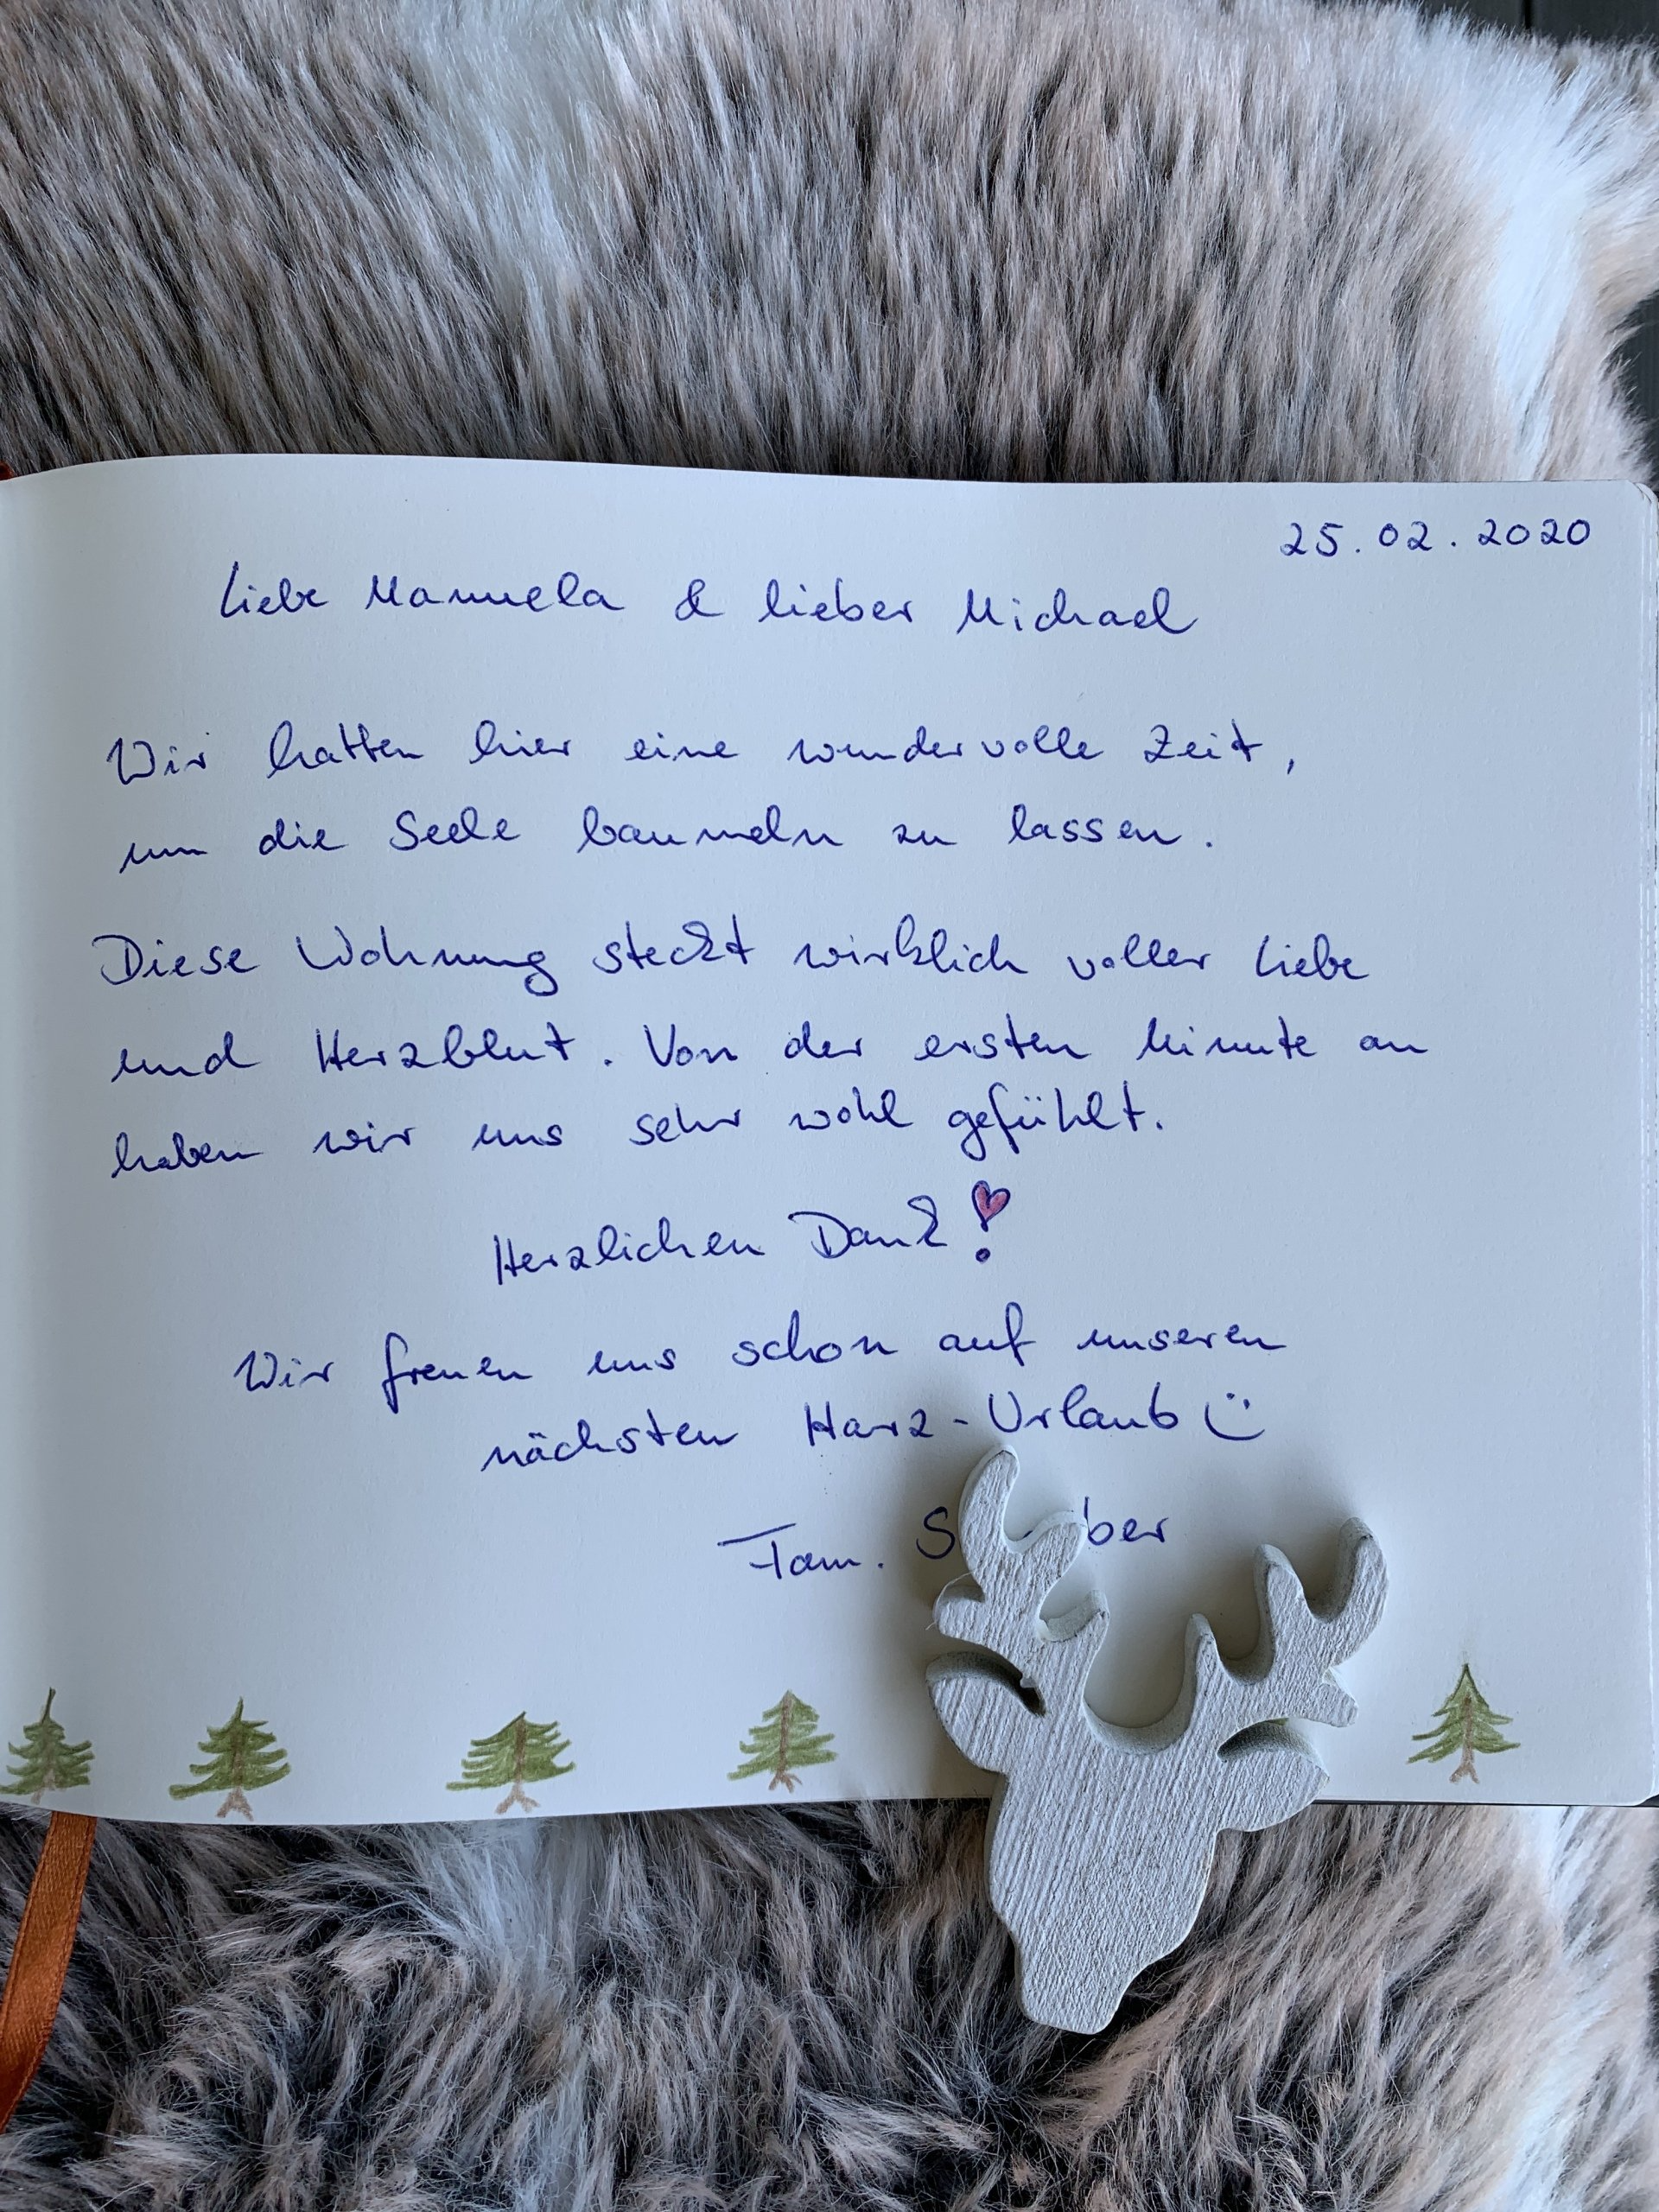 25.02.2020
Liebe Manuela & lieber Michael
Wir hatten hier eine wundervolle Zeit,
um die Seele baumeln zu lassen.
Diese Wohnung steckt wirklich voller Liebe
und Herzblut. Von der ersten Minute an
haben wir uns sehr wohl gefühlt.
Herzlichen Dank!
Wir freuen uns schon auf unseren
nächsten Harz-Urlaub
Fam.